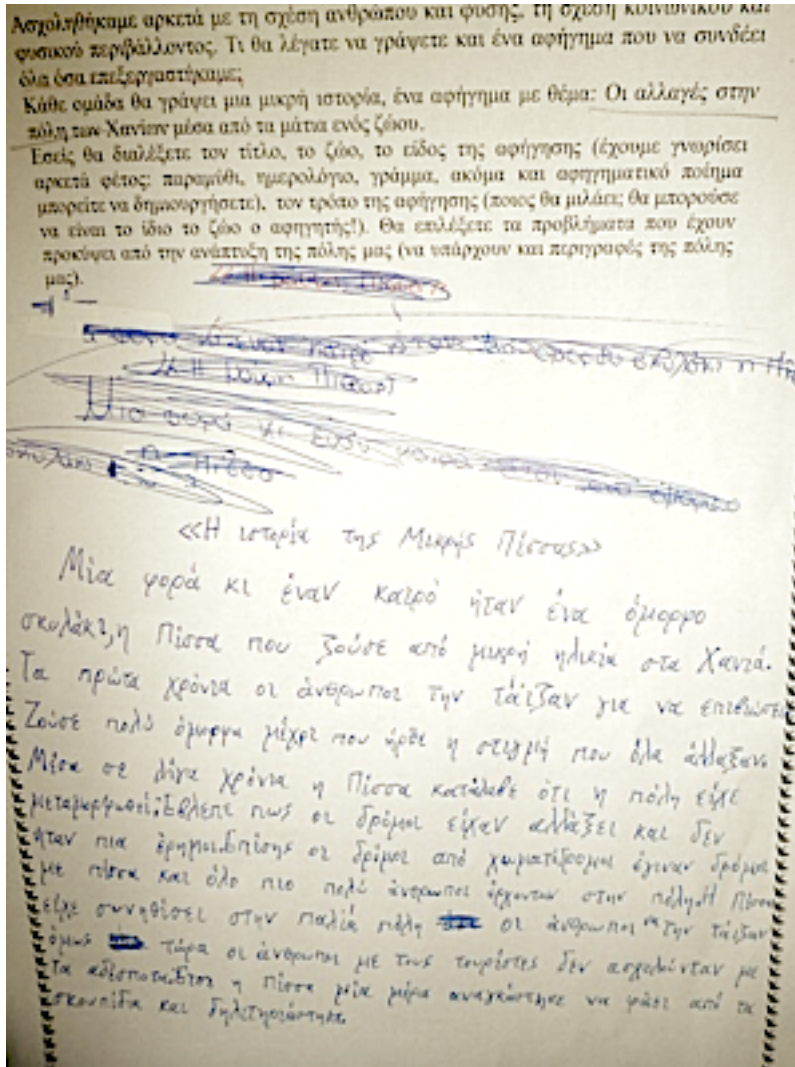 Ασχοληθήκαμε αρκετά με τη σχέση ανθρώπου και φύσης, τη σχέση κοινωνικού και
φυσικού περιβάλλοντος. Τι θα λέγατε να γράψετε και ένα αφήγημα που να συνδέει
όλα όσα επεξεργαστήκαμε;
Κάθε ομάδα θα γράψει μια μικρή ιστορία, ένα αφήγημα με θέμα: Οι αλλαγές στην
πόλη των Χανίων μέσα από τα μάτια ενός ζώου.
Εσείς θα διαλέξετε τον τίτλο, το ζώο, το είδος της αφήγησης (έχουμε γνωρίσει
αρκετά φέτος: παραμύθι, ημερολόγιο, γράμμα, ακόμα και αφηγηματικό ποίημα
μπορείτε να δημιουργήσετε), τον τρόπο της αφήγησης (ποιος θα μιλάει; θα μπορούσε
να είναι το ίδιο το ζώο ο αφηγητής!). Θα επιλέξετε τα προβλήματα που έχουν
προκύψει από την ανάπτυξη της πόλης μας (να υπάρχουν και περιγραφές της πόλης
μας).
Μια φορά κι έναν καιρό ήταν
η Πίσσα
<<Η ιστορία της Μικρής Πίσσας>>
Μία φορά κι έναν καιρό ήταν ένα όμορφο
σκυλάκι, η Πίσσα που ζούσε από μικρή ηλικία στα Χανιά.
Τα πρώτα χρόνια οι άνθρωποι την τάιζαν για να επιβιώσει
Ζούσε πολύ όμορφα μέχρι που ήρθε η στιγμή που όλα άλλαξαν.
Μέσα σε λίγα χρόνια η Πίσσα κατάλαβε ότι η πόλη είχε
μεταμορφωθεί. Έβλεπε πως οι δρόμοι είχαν αλλάξει και δεν
ήταν πια έρημοι. Επίσης οι δρόμοι από χωματόδρομοι έγιναν δρόμοι
με πίσσα και όλο πιο πολύ άνθρωποι έρχονταν στην πόλη. Η Πίσσα
είχε συνηθίσει στην παλιά πόλη οι άνθρωποι να την τάιζαν
όμως τώρα οι άνθρωποι με τους τουρίστες δεν ασχολιόνταν με
τα αδέσποτα. Έτσι η Πίσσα μία μέρα αναγκάστηκε να φάει από τα
σκουπίδια και δηλητηριάστηκε.